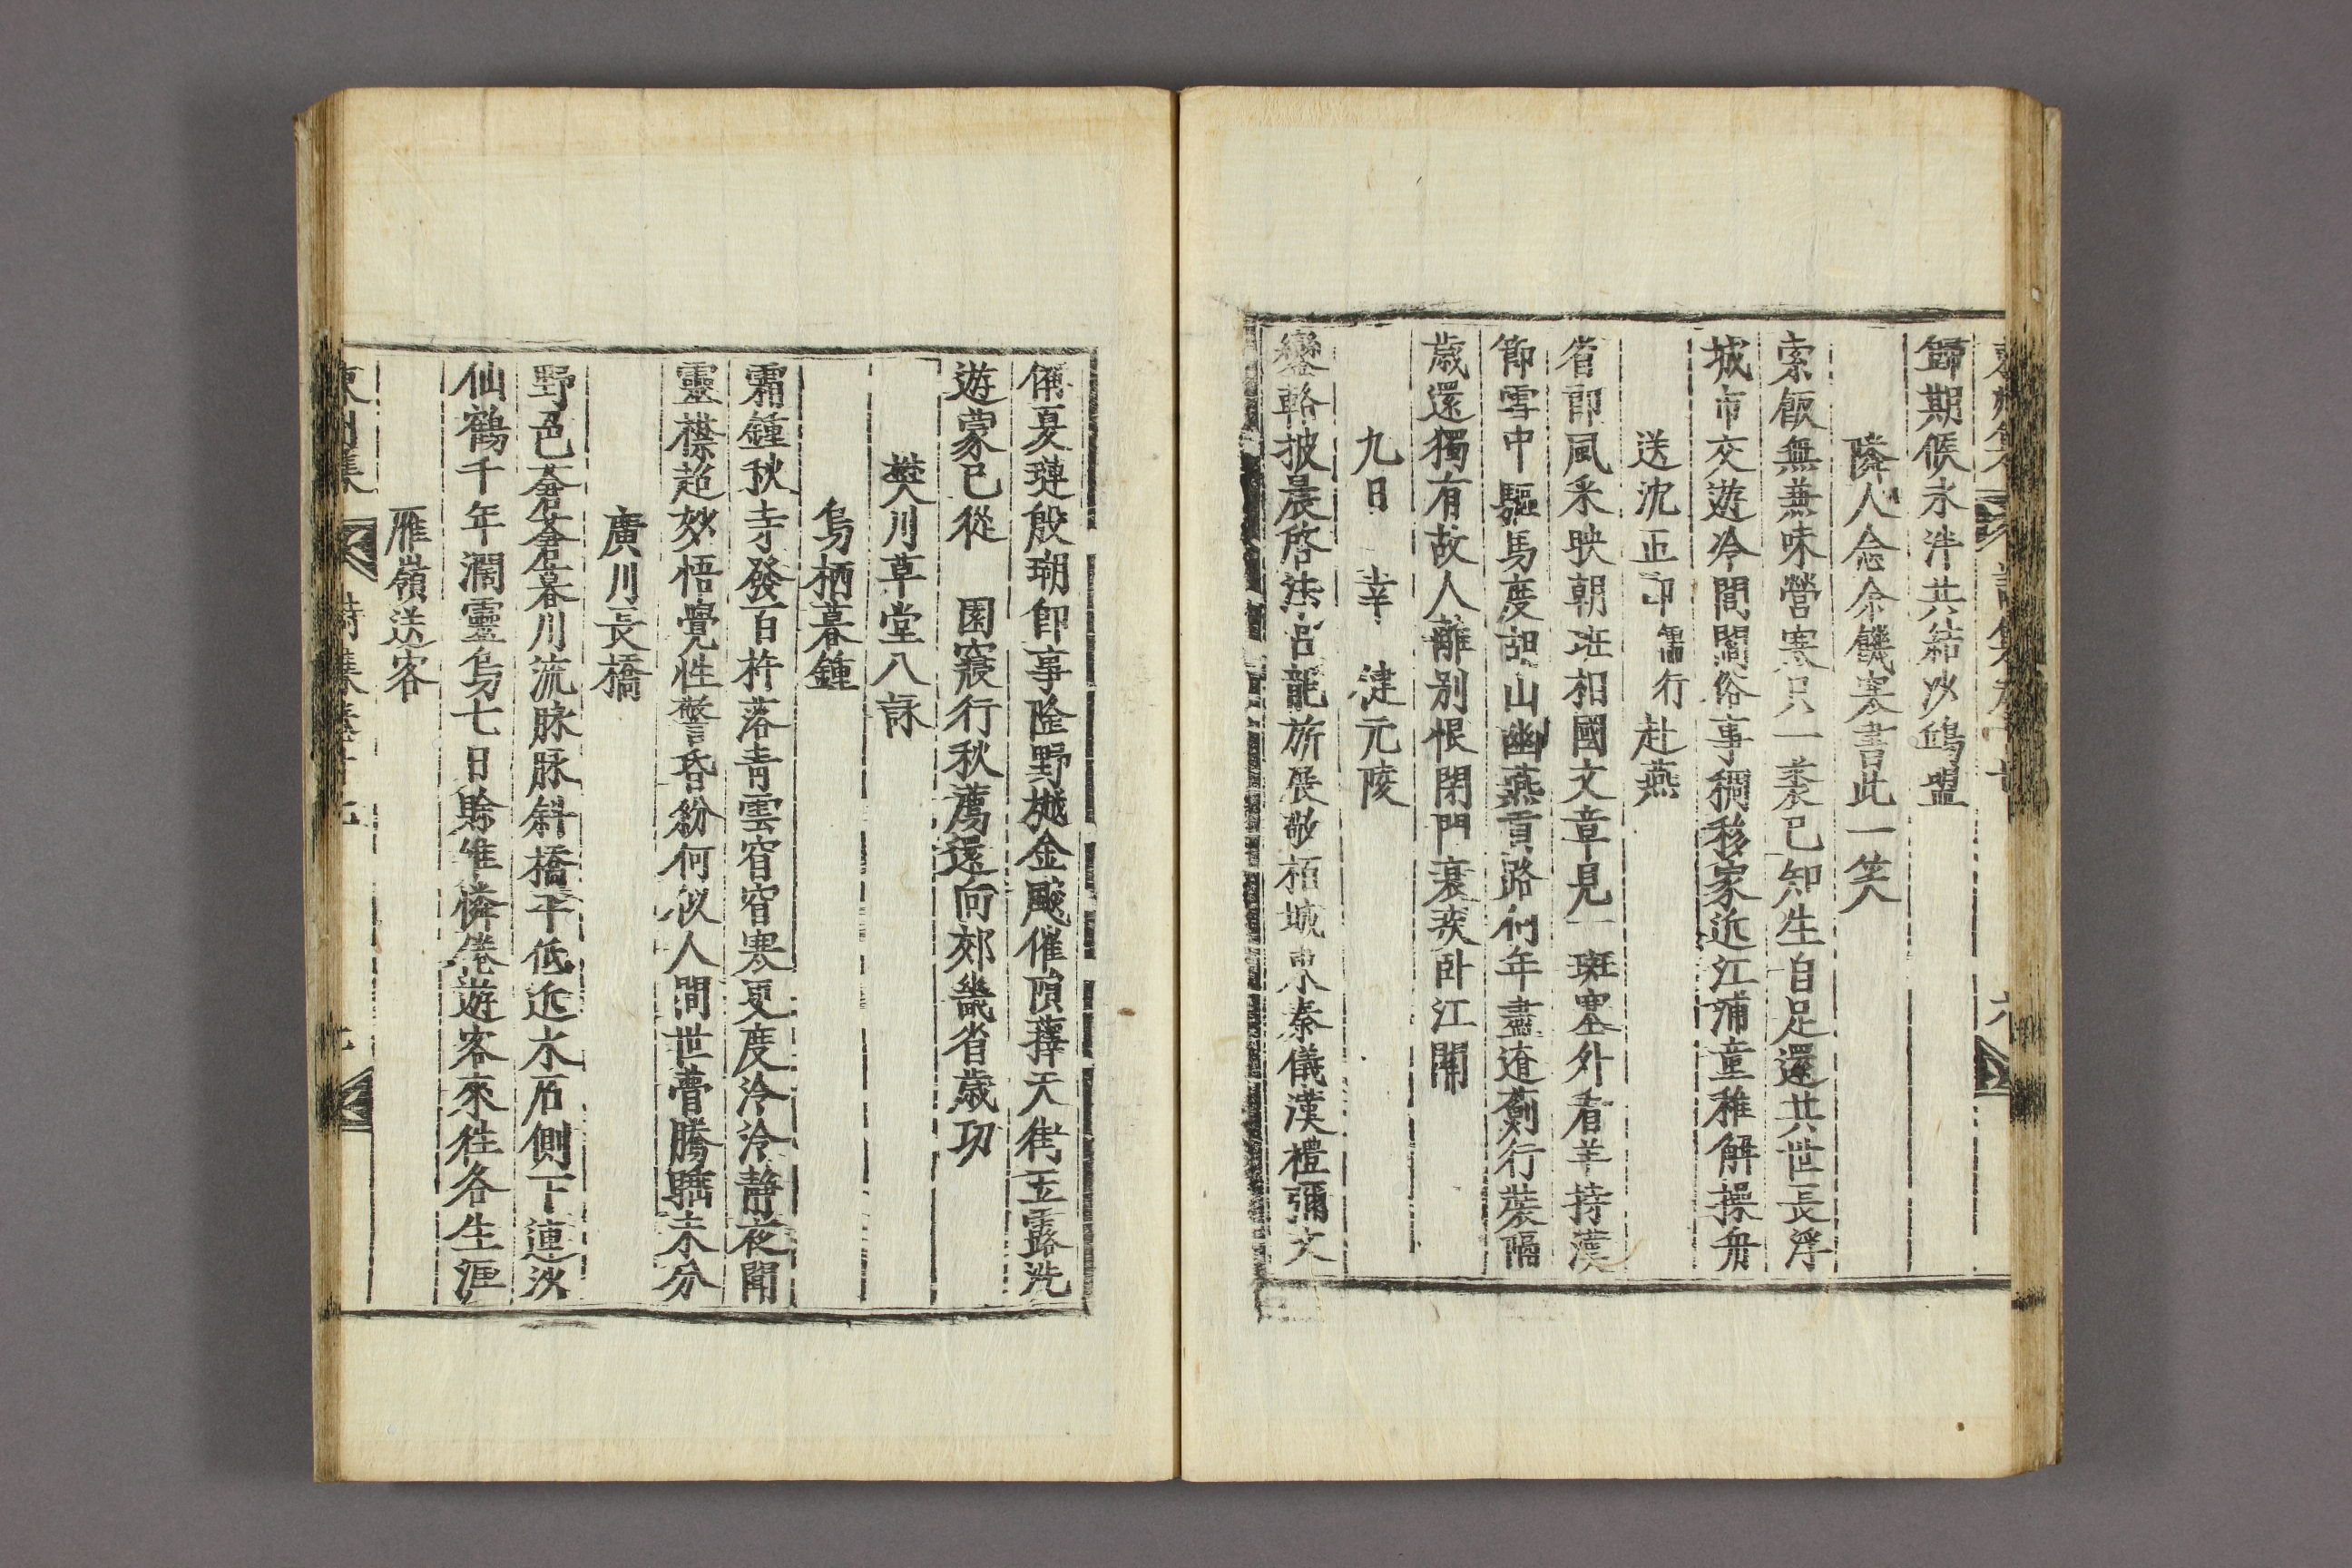 歸期候永泮共結沙鷗盟
隣人念余饑寒書此一笑
索飯無兼味營寒只一裘已知生自足還共世長浮
城市交遊冷閭閻俗事稠移家近江浦童稚解操舟
送沈正卿儒行赴燕
省郎風采映朝班相國文章見一斑塞外看羊持漢
節雪中驅馬度胡山幽燕貢路何年盡遼薊行裝隔
歲還獨有故人離别恨閉門衰疾卧江關
九日 幸 健元陵
鑾輅披晨啓法宮龍旂展敬栢城東秦儀漢禮彌文
備夏璉殷瑚卽事隆野樾金飈催隕蘀天街玉露洗
遊蒙已從 園寢行秋薦還向郊畿省歲功
樊川草堂八詠
烏栖暮鍾
霜鍾秋寺發百杵落靑雲窅窅寒更度泠泠靜夜聞
靈襟超妙悟覺性警昏紛何似人間世瞢騰驕未分
廣川長橋
野色蒼蒼暮川流脉脉斜橋平低近水石側下連沙
仙鶴千年濶靈烏七日賖惟憐倦遊客來往各生涯
雁嶺送客
東州集 詩集卷之七